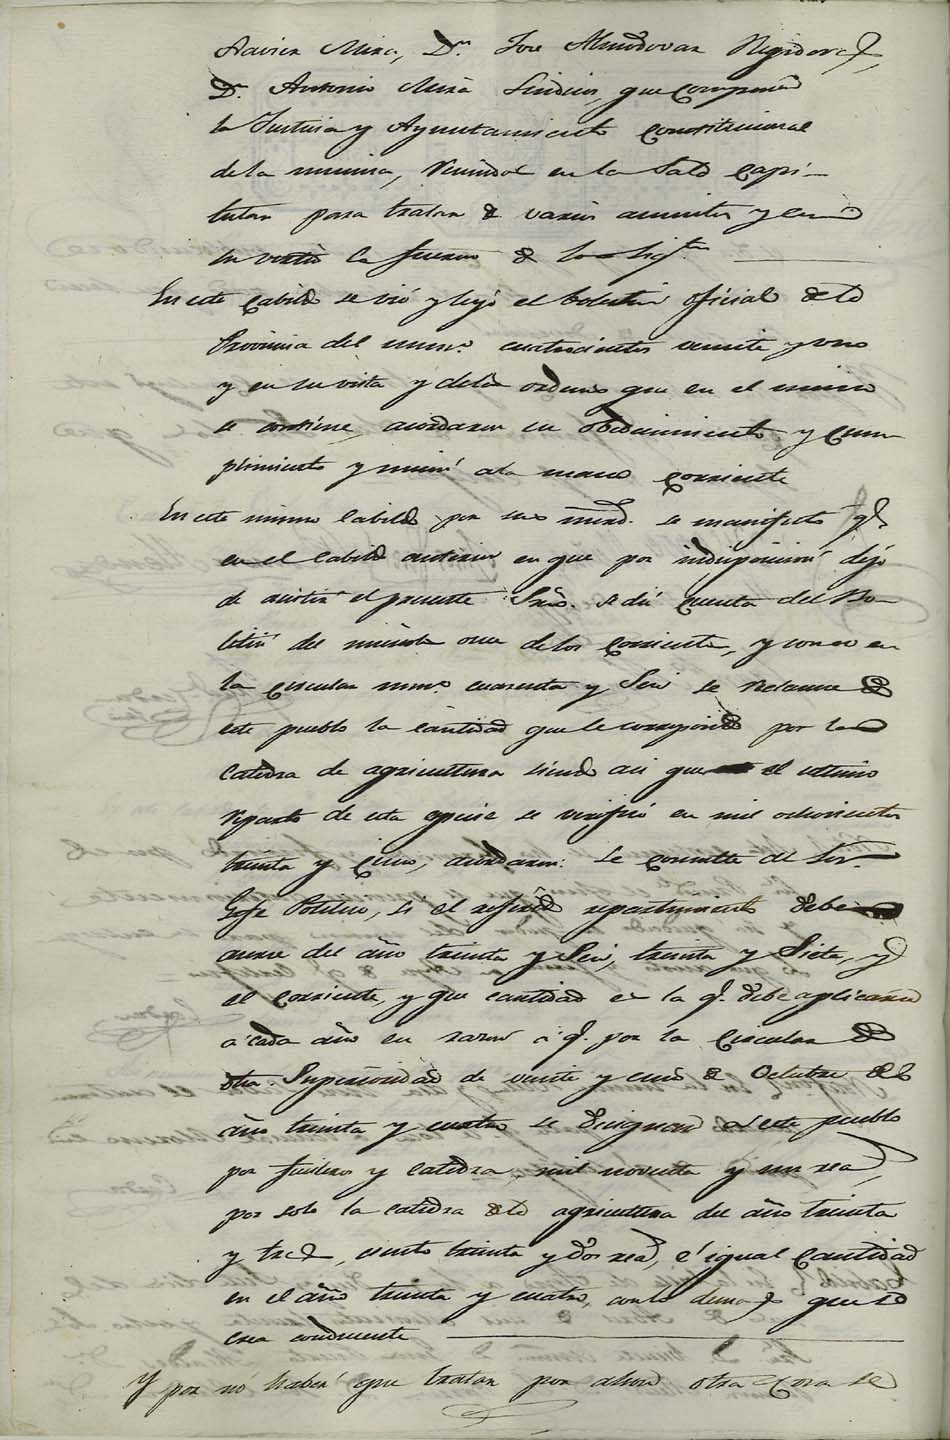 Xavier Mira, Dn. Jose Almodovar Regidores,
Dn. Antonio Mira Sindico, que componen
la Justicia y Ayuntamiento constitucional
de la misma, reunidos en la Sala Capi-
tular para tratar de varios asuntos y en
su virtud lo fueron de los sigtes.
En este Cabildo se vió y leyó el boletin oficial de la
Provincia del numo. cuatrocientos veinte y uno
y en su vista y delas ordenes que en el mismo
se contiene, acordaron su obedecimiento y cum-
plimiento y unirse ala mano corriente
En este mismo Cabildo por sus mrds. se manifestó qe.
en el Cabildo anterior en que por indisposicion dejó
de asistir el presente Srio. se dió cuenta del Bo-
letin del miercoles once delos corrientes, y como en
la circular numo. cuarenta y Seis se reclame de
este pueblo la cantidad que le corresponde por la
Catedra de agricultura siendo asi que el ultimo
reparto de esta especie se verificó en mil ochocientos
treinta y cinco, acordaron: Se consulte al Sor.
Gefe Politico, si el referido repartimiento debe
ser del año treinta y Seis, treinta y Siete, y
el corriente, y que cantidad es la qe. debe aplicarse
a cada año en razon á qe. por la Circular de
dha. Superioridad de veinte y cinco de Octubre del
año treinta y cuatro se designaron a este pueblo
por fusileros y catedra, mil noventa y un reas,
por solo la catedra de agricultura del año treinta
y tres, ciento treinta y dos reas, é igual Cantidad
en el año treinta y cuatro, con lo demas que se
crea conducente
Y por nó haber que tratar por ahora otra cosa se